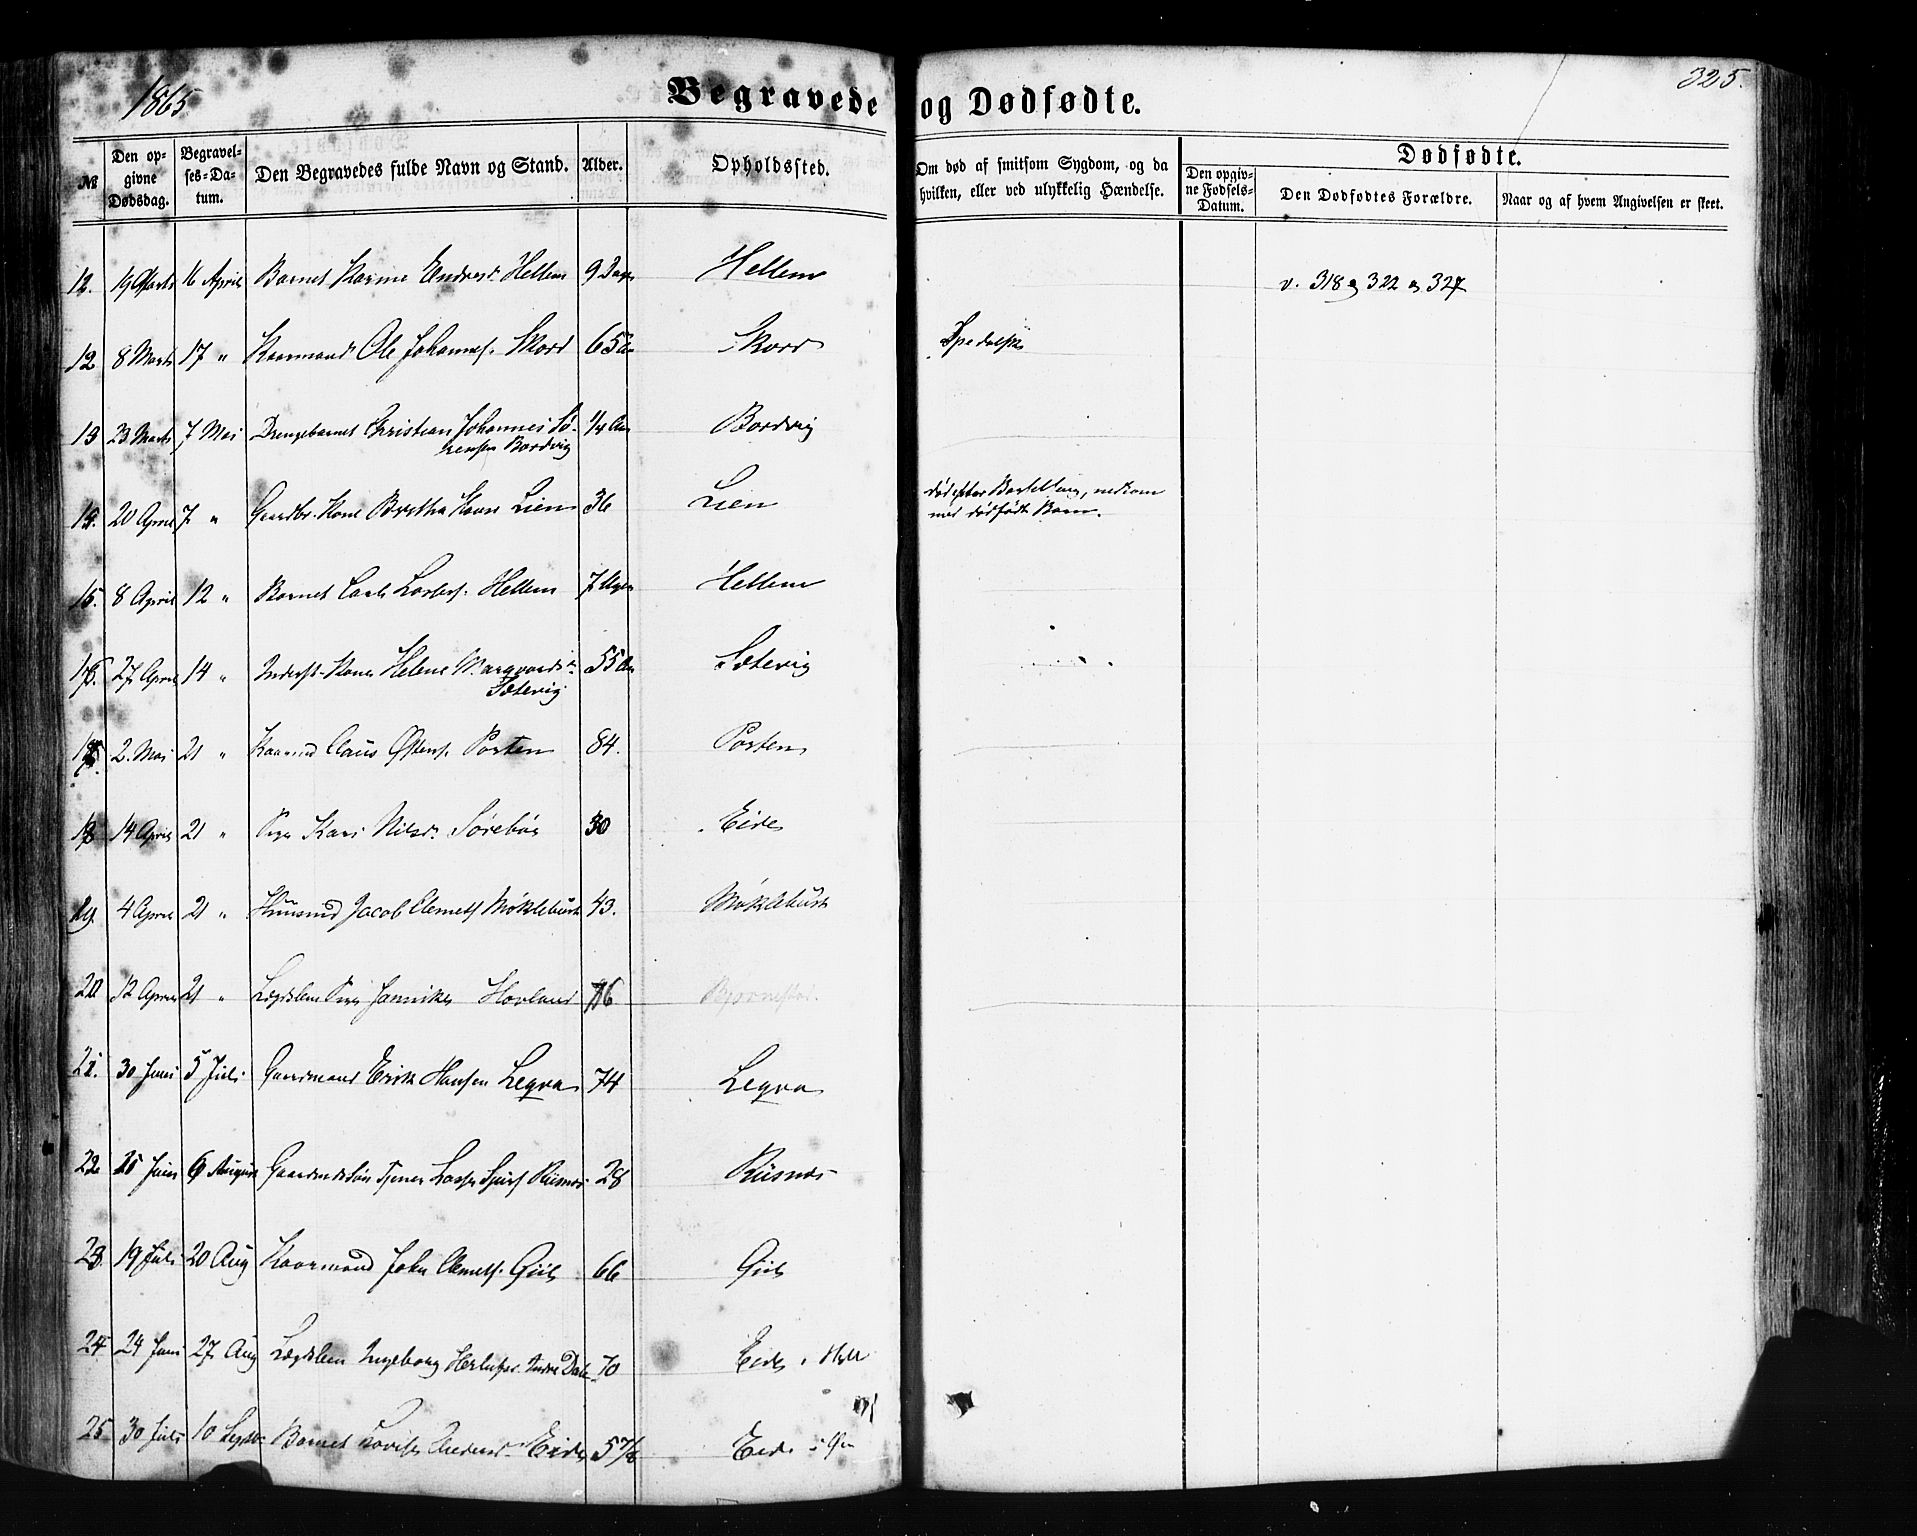 1865
Begravede og Dødfødte.
325.
№
Den opgivne Dødsdag.
Begravelses-Datum.
Den Begravedes fulde Navn og Stand.
Alder.
Opholdssted.
Om død af smitsom Sygdom, og da hvilken, eller ved ulykkelig Hændelse.
Dødfødte.
Den opgivne Fødsels-Datum.
Den Dødfødtes Forældre.
Naar og af hvem Angivelsen er skeet.
19 Marts 16 April Barnet Endresd. Hellem 9 Dage Hellem v. 318 og 322 og 327
12 8 Marts 17 " Kaarmand Ole Johannes. Skord 65 Skord Spedalsk
13 23 Marts 7 Mai Drengebarnet Christian Johannes Sø-
rensen Bordvig 1/4 Bordvig
20 April 7 " Gaardbr. Kone Brethe Lien 36 Lien død efter Barsel nedkom
med dødfødt Barn.
15. 8 April 12 " Barnet Hellem 7 Uger Hellem
16. 27 April 14 " Inderst. Kone Helene Margvards
Sætevig 55 Sætevig
2. Mai 21 " Kaarmd Claus Østens. Porten 84. Porten
18 14 April 21 " Pige Kari Nilsd. Sørebøe 30 Eide
19. 4 April 21 " Huusmd Jacob Clemets Møklebust 43. Møklebust
20 12 April 21 " Lægdslem Pige Jannike Hovland 76
21. 30 Juni 5 Juli Gaardmand Erik Hansen Leqva 74 Leqva
22 25 Juni 6 August Gaardmdsøn Tjener Lasse Sjurs Riisnæs 28 Riisnæs
23. 19 Juli 20 Aug Kaarmand John Clemets. Giil 66 Giil
24 24 Juni 27 Aug Lægdslem Ingeborg Indre Dale 70 Eide
25 30 Juli 10 Sept Barnet Andersd. Eide 5 7/8 Eide